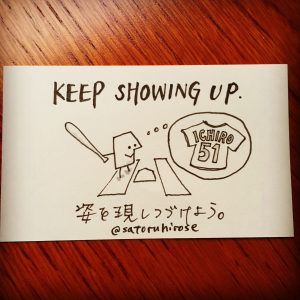 KEEP SHOWING UP.
ICHIRO
51
姿を現しつづけよう。
@satoruhirose